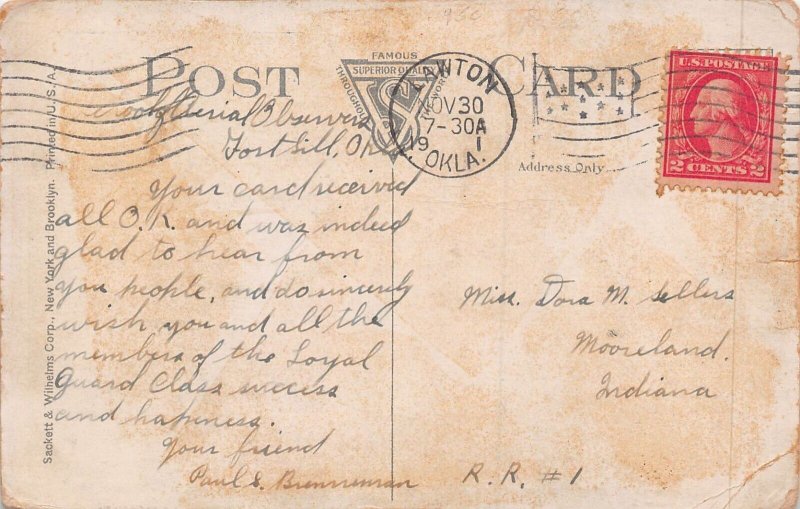 POST CARD
FAMOUS
SUPERIOR QUALITY
THROUGHOUT
LAWTON
NOV 30
7-30A
19 1
OKLA.
U.S. POSTAGE
2 CENTS 2
Address Only
Aerial Observers
Fort Sill, Okla.
Your card received
all O.K. and was indeed
glad to hear from
you people, and do sincerely
wish you and all the
members of the Loyal
Guard Class success
and happiness.
Your friend
Paul S. Brenneman
Miss. Dora M. Sellers
Mooreland.
Indiana
R. R. #1
Sackett & Wilhelms Corp., New York and Brooklyn. Printed in U.S.A.